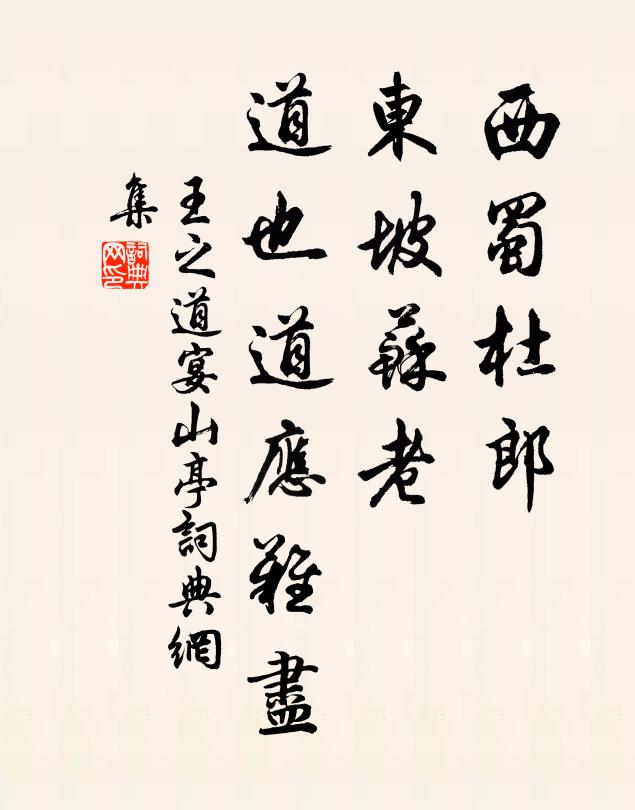 西蜀杜郎
東坡蘇老
道也道應難盡
王之道宴山亭詞典網
集
詞典
网印